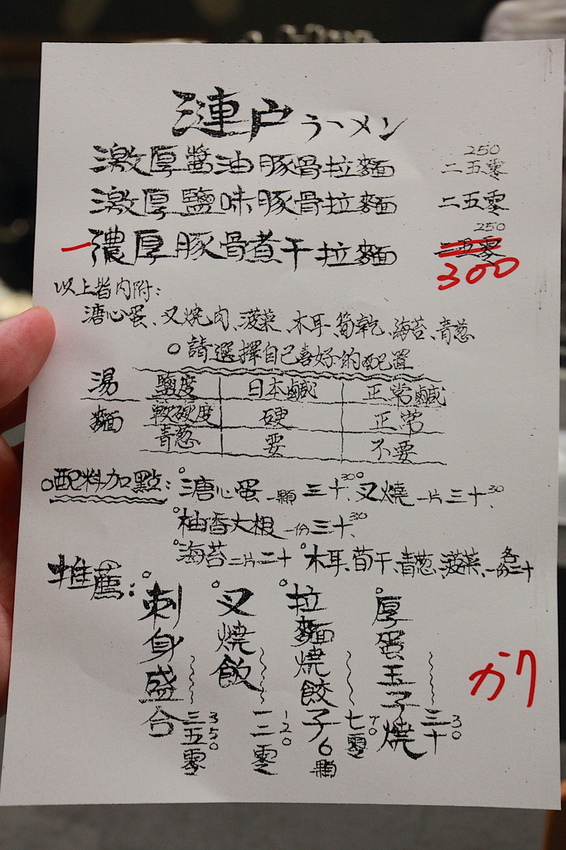 漣戶ラーメン
激厚醬油豚骨拉麵 250 二五零
激厚鹽味豚骨拉麵 二五零
一濃厚豚骨煮干拉麵 250 二五零 300
以上皆內附：
溏心蛋、叉燒肉、菠菜、木耳、筍乾、海苔、青葱
○請選擇自己喜好的配置
湯 鹽度 日本鹹 正常鹹
麵 軟硬度 硬 正常
青葱 要 不要
○配料加點：○溏心蛋一顆三十、30 ○叉燒一片三十、30
○柚香大根一份三十、30
○海苔二片二十 ○木耳、筍干、青葱、菠菜、一份各三十
推薦：
○刺身盛合 三五零 350
○叉燒飯 一二零 120
○拉麵燒餃子6顆 七零 70
○厚蛋玉子燒 三十 30
かり